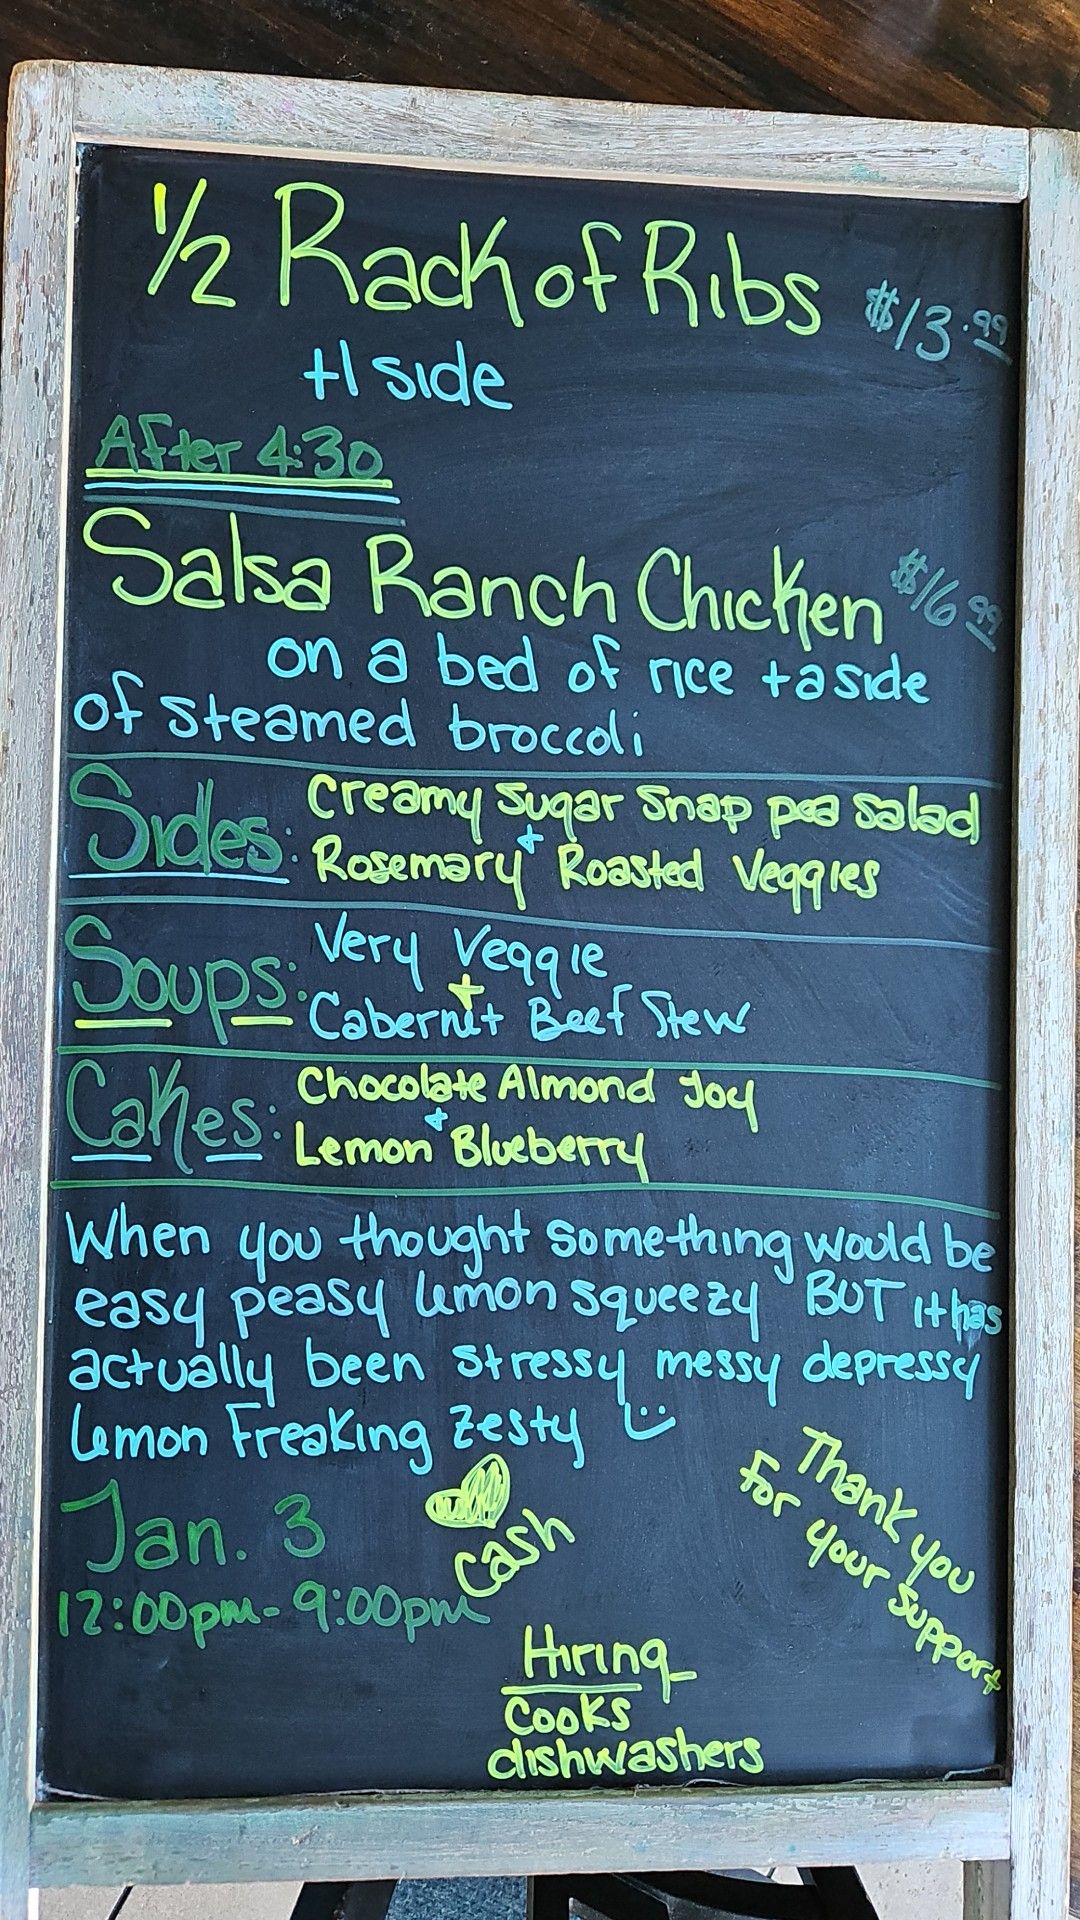 1/2 Rack of Ribs $13.99
+1 side
After 4:30
Salsa Ranch Chicken $16.99
on a bed of rice + a side
of steamed broccoli
Sides: Creamy Sugar Snap pea Salad
+
Rosemary Roasted Veggies
Soups: Very Veggie
+
Cabernet Beef Stew
Cakes: Chocolate Almond Joy
+
Lemon Blueberry
When you thought something would be
easy peasy lemon squeezy BUT it has
actually been stressy messy depressy
lemon Freaking Zesty :)
Jan. 3
12:00pm - 9:00pm
Cash
Thank you
for your support
Hiring
Cooks
dishwashers